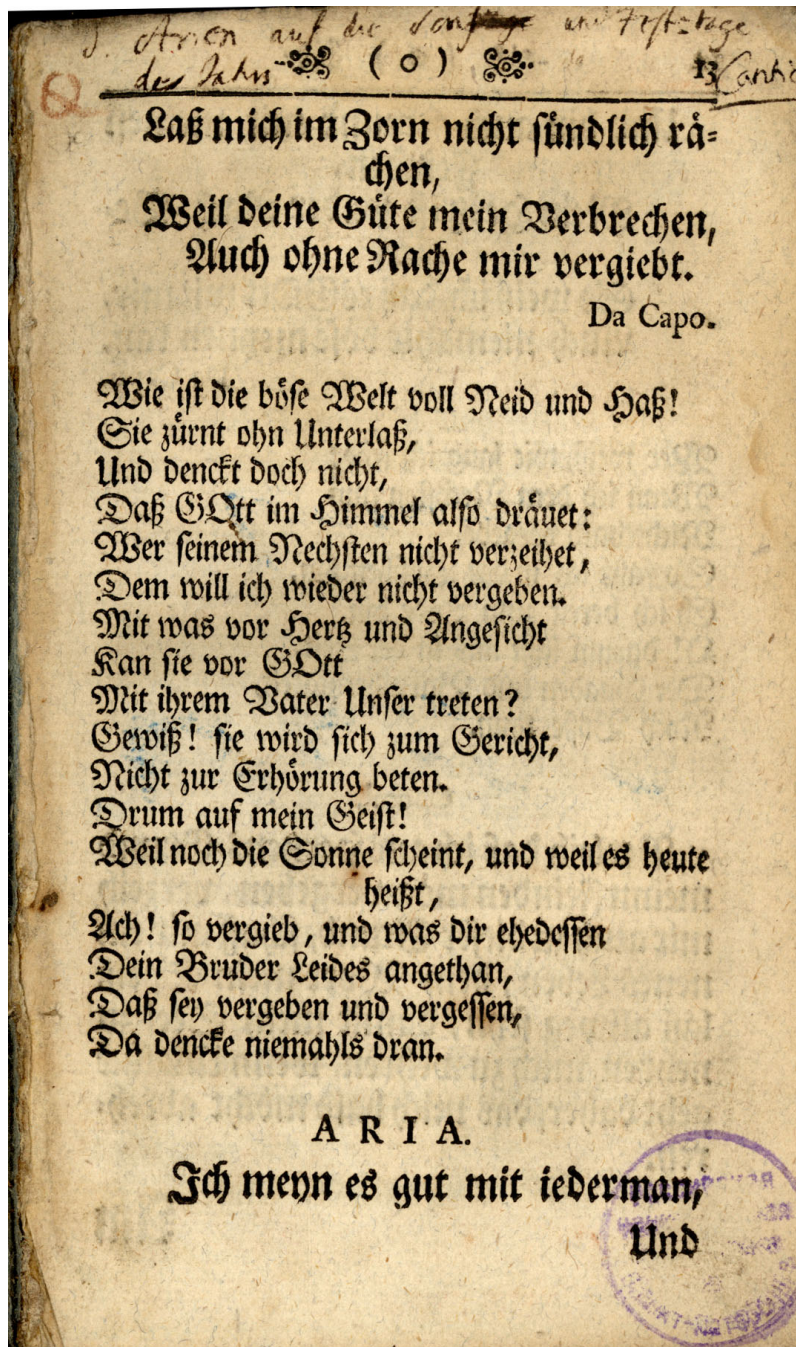 J. Arien auf die Sonntage und Festtage
des Jahrs
( o ) 13
Laß mich im Zorn nicht sündlich rä-
chen,
Weil deine Güte mein Verbrechen,
Auch ohne Rache mir vergiebt.
Da Capo.
Wie ist die böse Welt voll Neid und Haß!
Sie zürnt ohn Unterlaß,
Und denckt doch nicht,
Daß GOtt im Himmel also dräuet:
Wer seinem Nechsten nicht verzeihet,
Dem will ich wieder nicht vergeben.
Mit was vor Hertz und Angesicht
Kan sie vor GOtt
Mit ihrem Vater Unser treten?
Gewiß! sie wird sich zum Gericht,
Nicht zur Erhörung beten.
Drum auf mein Geist!
Weil noch die Sonne scheint, und weil es heute
heißt,
Ach! so vergieb, und was dir ehedessen
Dein Bruder Leides angethan,
Daß sey vergeben und vergessen,
Da dencke niemahls dran.
ARIA.
Ich meyn es gut mit iederman,
Und